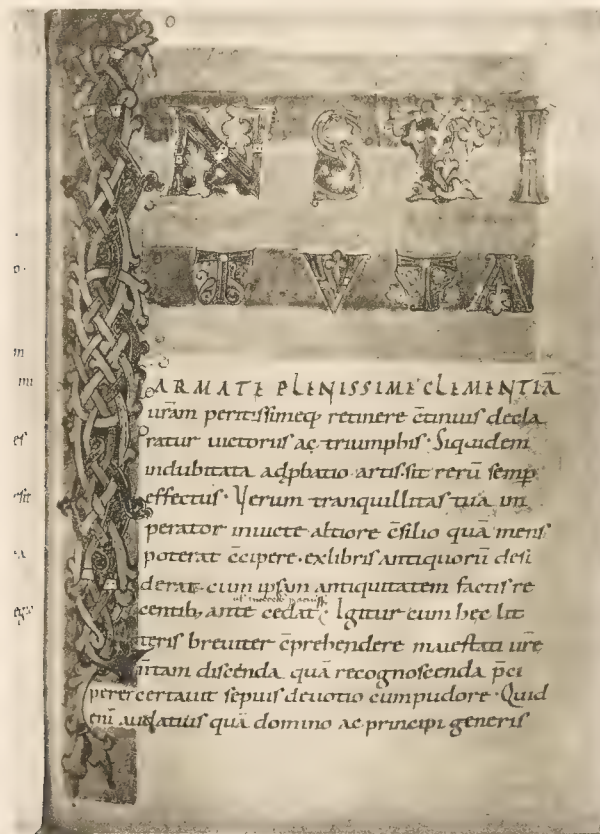 INSTI
TVTA
ARMATE PLENISSIME CLEMENTIĀ
urām peritissimeq; retinere c̄tinuis decla
ratur uictoriis ac triumphis· Siquidem
indubitata adp̱batio artis sit rerū semp̱
effectus· Verum tranquillitas tua im
perator inuicte altiore c̄silio quā mens
poterat c̄cipere· ex libris antiquorū desi
derat· cum ipsam antiquitatem factis re
centib; ante cedat· Igitur cum hęc lit
teris breuiter c̄prehendere maiestati urē
n̄ tam discenda quā recognoscenda p̄ci
perer certauit sepius deuotio cum pudore· Quid
eni audatius quā domino ac principi generis
m
mi
es